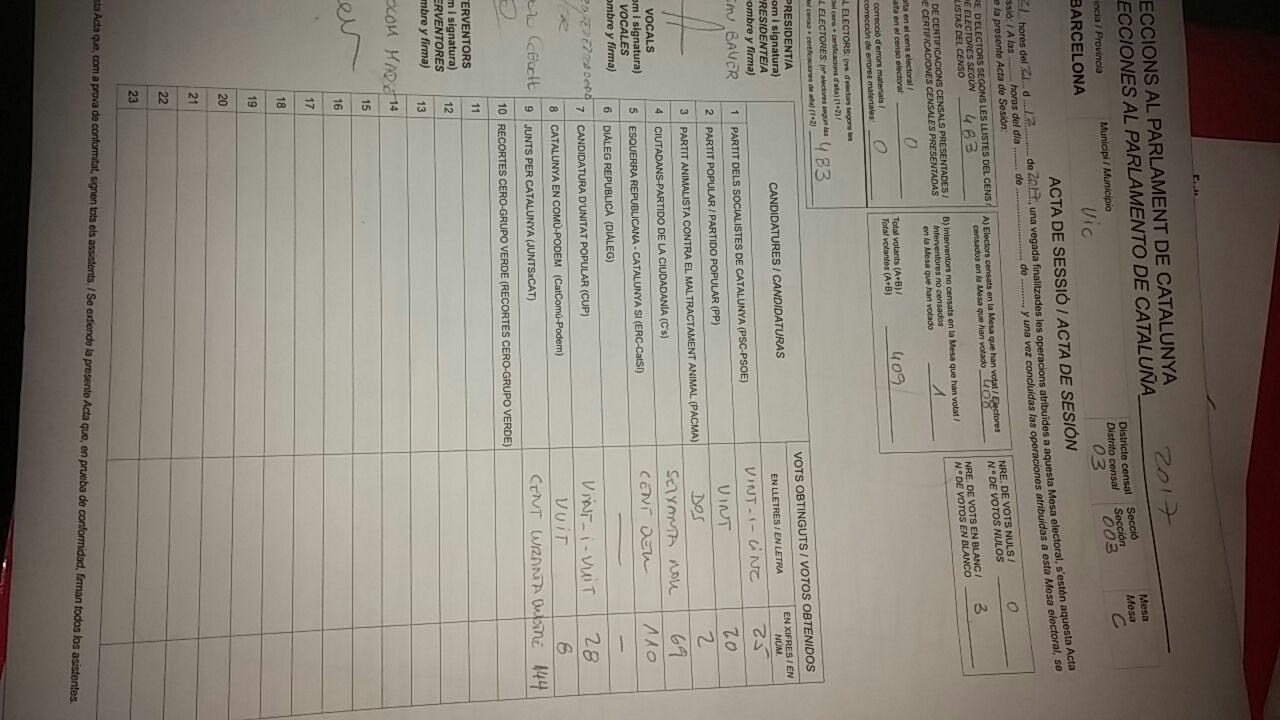 ECCIONS AL PARLAMENT DE CATALUNYA
ECCIONES AL PARLAMENTO DE CATALUÑA 2017
ncia / Provincia
BARCELONA
Municipi / Municipio
Vic
Districte censal
Distrito censal
03
Secció
Sección
003
Mesa
Mesa
C
ACTA DE SESSIÓ / ACTA DE SESIÓN
21 hores del 21 d 12 de 2017, una vegada finalitzades les operacions atribuïdes a aquesta Mesa electoral, s'estén aquesta Acta
ssió: / A las horas del día de de y una vez concluidas las operaciones atribuidas a esta Mesa electoral, se
e la presente Acta de Sesión:
E. D'ELECTORS SEGONS LES LLISTES DEL CENS /
DE ELECTORES SEGÚN
LISTAS DEL CENSO 483
DE CERTIFICACIONS CENSALS PRESENTADES /
DE CERTIFICACIONES CENSALES PRESENTADAS
alta en el cens electoral /
alta en el censo electoral: 0
correcció d'errors materials /
corrección de errores materiales: 0
L ELECTORS: (nre. d'electors segons les
del cens + certificacions d'alta) (1+2) /
L ELECTORES: (nº electores según las
del censo + certificaciones de alta) (1+2) 483
A) Electors censats en la Mesa que han votat / Electores
censados en la Mesa que han votado 408
B) Interventors no censats en la Mesa que han votat /
Interventores no censados
en la Mesa que han votado 1
Total votants (A+B) /
Total votantes (A+B) 409
NRE. DE VOTS NULS /
N.º DE VOTOS NULOS 0
NRE. DE VOTS EN BLANC /
N.º DE VOTOS EN BLANCO 3
PRESIDENTIA
om i signatura)
PRESIDENTE/A
ombre y firma)
BAUER
VOCALS
om i signatura)
VOCALES
ombre y firma)
TERVENTORS
m i signatura)
ERVENTORES
mbre y firma)
CANDIDATURES / CANDIDATURAS
VOTS OBTINGUTS / VOTOS OBTENIDOS
EN LLETRES / EN LETRA
EN XIFRES / EN NÚM.
1 PARTIT DELS SOCIALISTES DE CATALUNYA (PSC-PSOE) VINT-I-CINC 25
2 PARTIT POPULAR / PARTIDO POPULAR (PP) VINT 20
3 PARTIT ANIMALISTA CONTRA EL MALTRACTAMENT ANIMAL (PACMA) DOS 2
4 CIUTADANS-PARTIDO DE LA CIUDADANÍA (C's) SEIXANTA NOU 69
5 ESQUERRA REPUBLICANA - CATALUNYA SI (ERC-CatSI) CENT DEU 110
6 DIÀLEG REPUBLICÀ (DIÀLEG) — —
7 CANDIDATURA D'UNITAT POPULAR (CUP) VINT-I-VUIT 28
8 CATALUNYA EN COMÚ-PODEM (CatComú-Podem) VUIT 8
9 JUNTS PER CATALUNYA (JUNTSxCAT) CENT 144
10 RECORTES CERO-GRUPO VERDE (RECORTES CERO-GRUPO VERDE)
11
12
13
14
15
16
17
18
19
20
21
22
23
sta Acta que, com a prova de conformitat, signen tots els assistents. / Se extiende la presente Acta que, en prueba de conformidad, firman todos los asistentes.